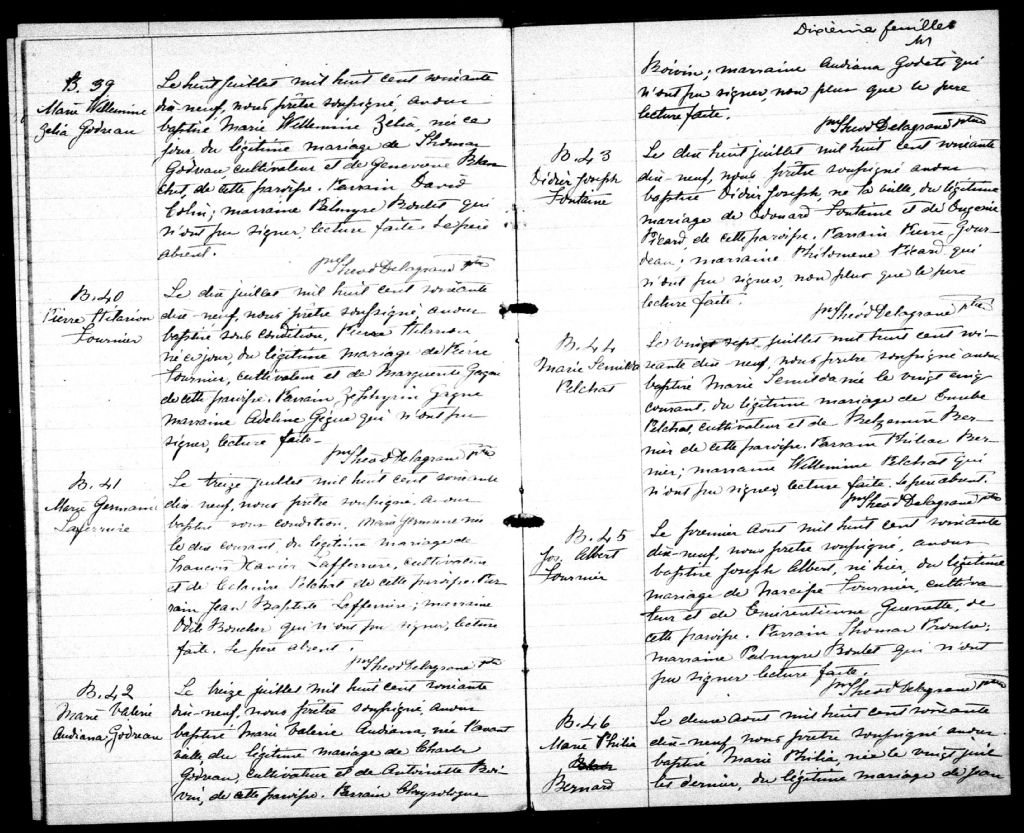 B. 39
Marie Willemine
Zelia Godreau
Le huit juillet mil huit cent soixante
dix-neuf, nous prêtre soussigné, avons
baptisé Marie Willemine Zelia, née ce
jour du légitime mariage de Thomas
Godreau, cultivateur et de Genevieve Blan-
chet de cette paroisse. Parrain David
Colin; marraine Palmyre Boulet qui
n'ont pu signer, lecture faite. Le père
absent.
Theod Delagrave ptre
B. 40
Pierre Hilarion
Fournier
Le dix juillet mil huit cent soixante
dix-neuf, nous prêtre soussigné, avons
baptisé sous condition, Pierre Hilarion
né ce jour, du légitime mariage de Pierre
Fournier, cultivateur et de Marguerite Gagné
de cette paroisse. Parrain Zephyrin Gagné
marraine Adeline Gagné qui n'ont pu
signer, lecture faite.
Theod Delagrave ptre
B. 41
Marie Germaine
Laferriere
Le treize juillet mil huit cent soixante
dix-neuf, nous prêtre soussigné avons
baptisé sous condition, Marie Germaine née
le dix courant, du légitime mariage de
François Xavier Lafferriere, cultivateur
et de Pelchat de cette paroisse. Par-
rain Jean Baptiste Lafferriere; marraine
Odile Boucher qui n'ont pu signer, lecture
faite. Le père absent.
Theod Delagrave ptre
B. 42
Marie Valerie
Audiana Godreau
Le treize juillet mil huit cent soixante
dix-neuf, nous prêtre soussigné, avons
baptisé Marie Valerie Audiana, née l'avant
veille, du légitime mariage de Charles
Godreau, cultivateur et de Antoinette Boi-
vin, de cette paroisse. Parrain Chrysologue
Dixième feuillet
Boivin; marraine Audiana Godets qui
n'ont pu signer, non plus que le père
lecture faite.
Theod Delagrave ptre
B. 43
Didier Joseph
Fontaine
Le dix huit juillet mil huit cent soixante
dix-neuf, nous prêtre soussigné avons
baptisé Didier Joseph, né la veille, du légitime
mariage de Edouard Fontaine et de Eugenie
Picard, de cette paroisse. Parrain Pierre Gour-
deau; marraine Philomene Picard qui
n'ont pu signer, non plus que le père
lecture faite.
Theod Delagrave ptre
B. 44
Marie
Pelchat
Le vingt sept juillet mil huit cent soi-
xante dix-neuf, nous prêtre soussigné avons
baptisé Marie née le vingt cinq
courant, du légitime mariage de
Pelchat, cultivateur et de Belzemire Ber-
nier de cette paroisse. Parrain Ber-
nier; marraine Willemine Pelchat qui
n'ont pu signer, lecture faite. Le père absent.
Theod Delagrave ptre
B. 45
Jos. Albert
Fournier
Le premier Aout mil huit cent soixante
dix-neuf, nous prêtre soussigné, avons
baptisé Joseph Albert, né hier, du légitime
mariage de Narcisse Fournier, cultiva-
teur et de Emerentienne Guenette, de
cette paroisse. Parrain Thomas Proulx;
marraine Palmyre Boulet qui n'ont
pu signer lecture faite
Theod Delagrave ptre
B. 46
Marie Philia
Bernard
Le deux aout mil huit cent soixante
dix-neuf nous prêtre soussigné avons
baptisé Marie Philia, née le vingt juil
let dernier, du légitime mariage de Jean